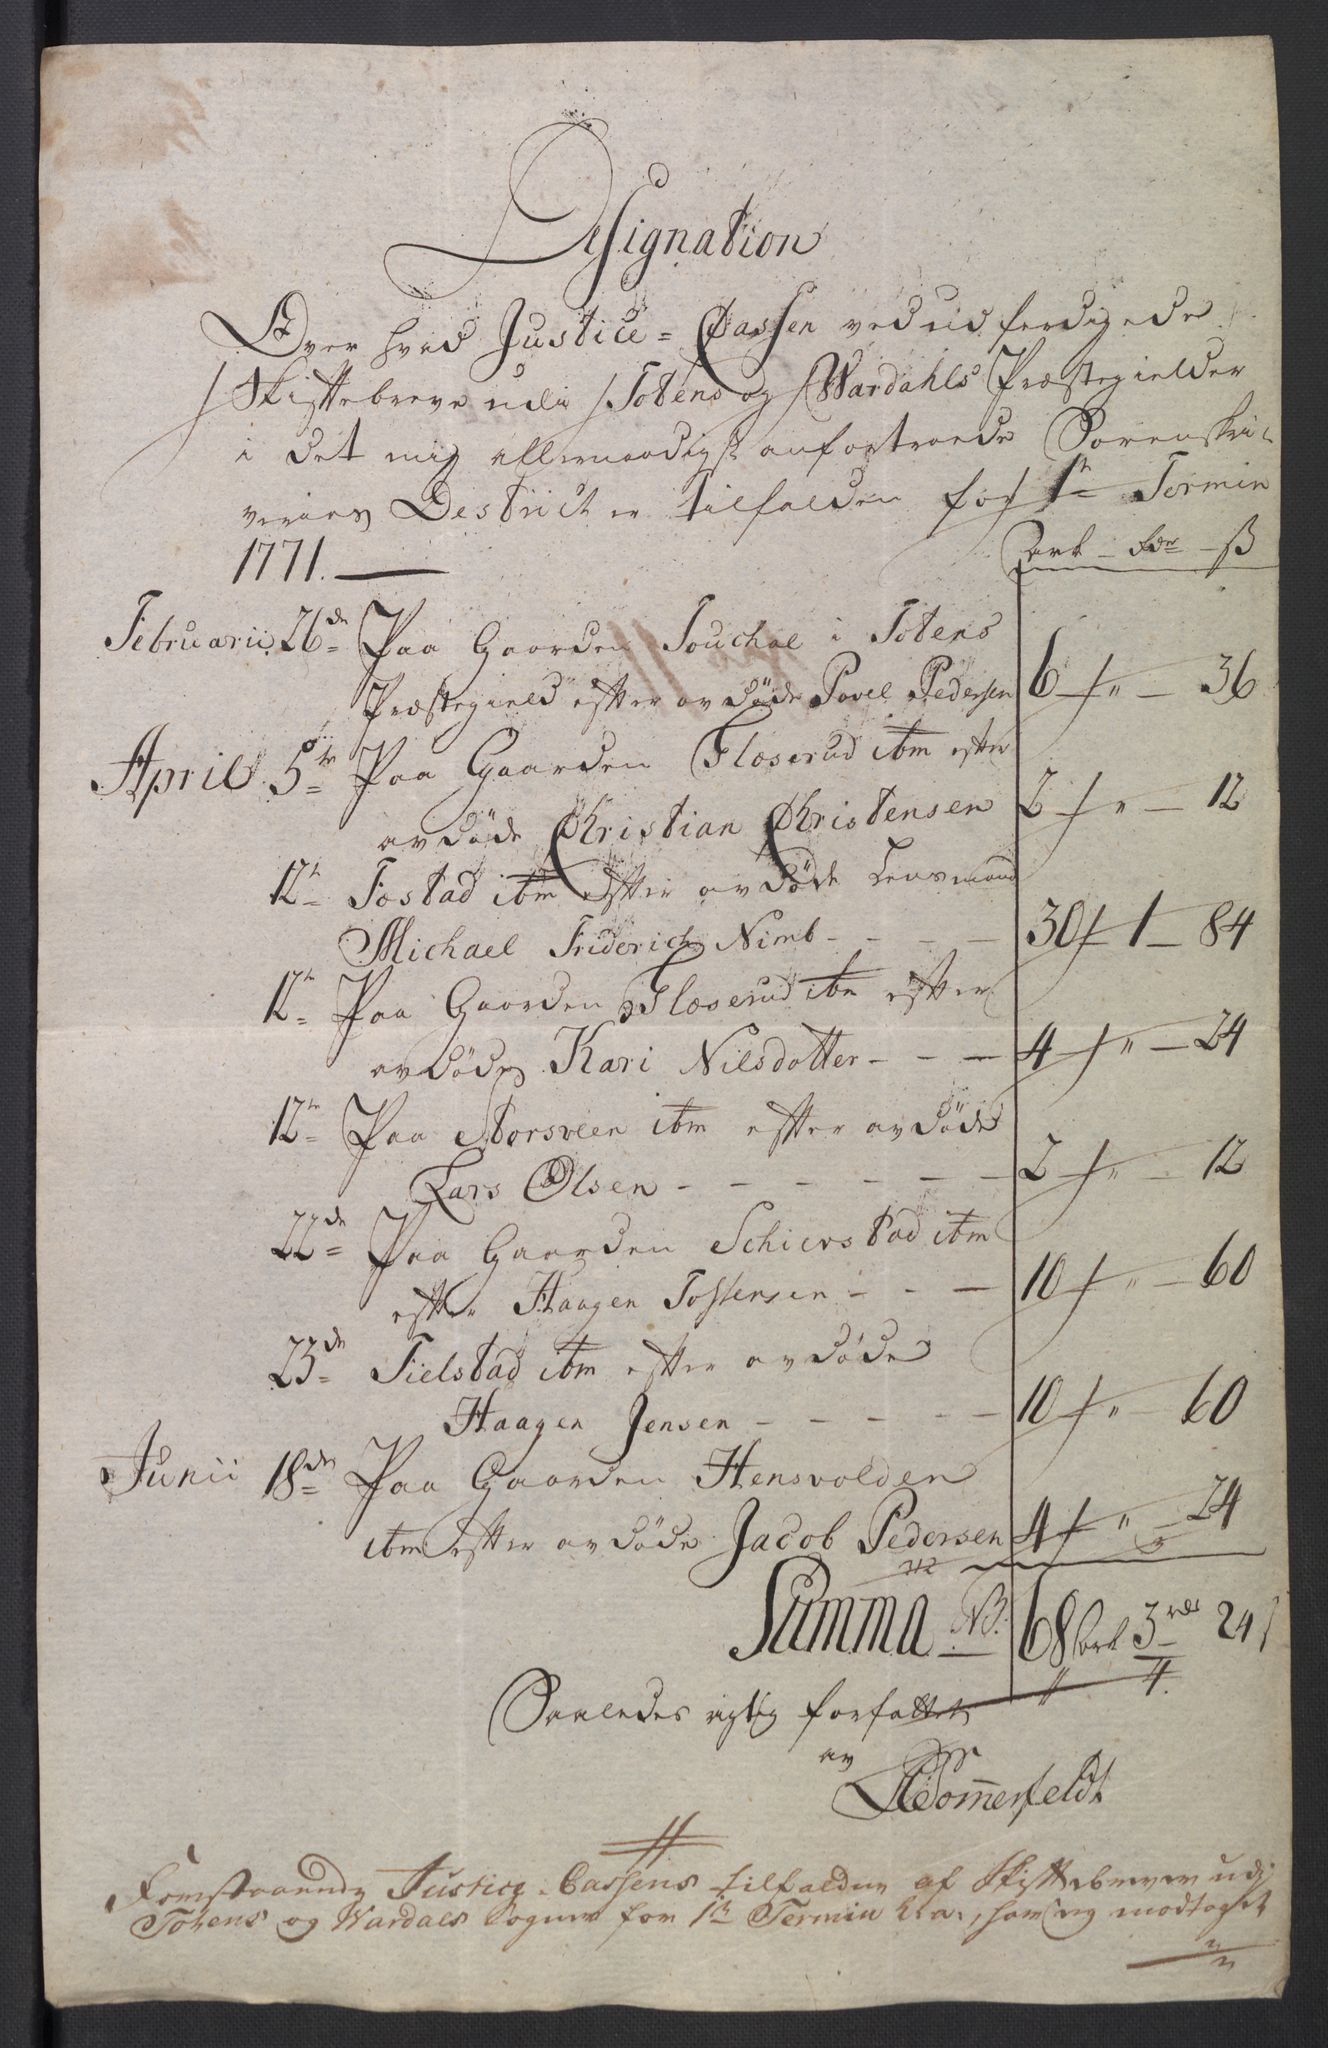 Designation
Over hvad Justice = Cassen ved udferdigede
Skiftebreve udi Totens og Wardahls Præstegielder
i det mig allernaadigst anfortroede Sorenskri-
veries Destrict er tilfalden for 1te Termin
1771. ark - Rdr - ß
Februarii 26de Paa Gaarden Souchal i Totens
Præstegield efter avdøde Povel Pedersen 6 " 36
April 5te Paa Gaarden Flaserud ibm efter
avdøde Christian Christensen 2 " 12
12te Fostad ibm efter avdøde Lensmand
Michael Friderich Nimb - - - - 30 1 - 84
12te Paa Gaarden Flaserud ibm efter
avdøde Kari Nilsdotter - - - 4 " 24
12te Paa Storsveen ibm efter avdøde
Lars Olsen - - - - - - 2 " 12
22de Paa Gaarden Schierstad ibm
efter Haagen Tostensen - - - 10 " 60
23de Fielstad ibm efter avdøde
Haagen Jensen - - - - - 10 " 60
Junii 18de Paa Gaarden Hensvolden
ibm efter avdøde Jacob Pedersen 4 " 24
Summa NB. 68 Ark 3 rdr 24
" 4.
Saaledes rigtig forfattet
av
Sommerfeldt
Forestaaende Justice-Cassens tilfaldne af Skiftebreve udi
Totens og Wardals Sogner for 1te Termin h: a:, har ieg modtaget